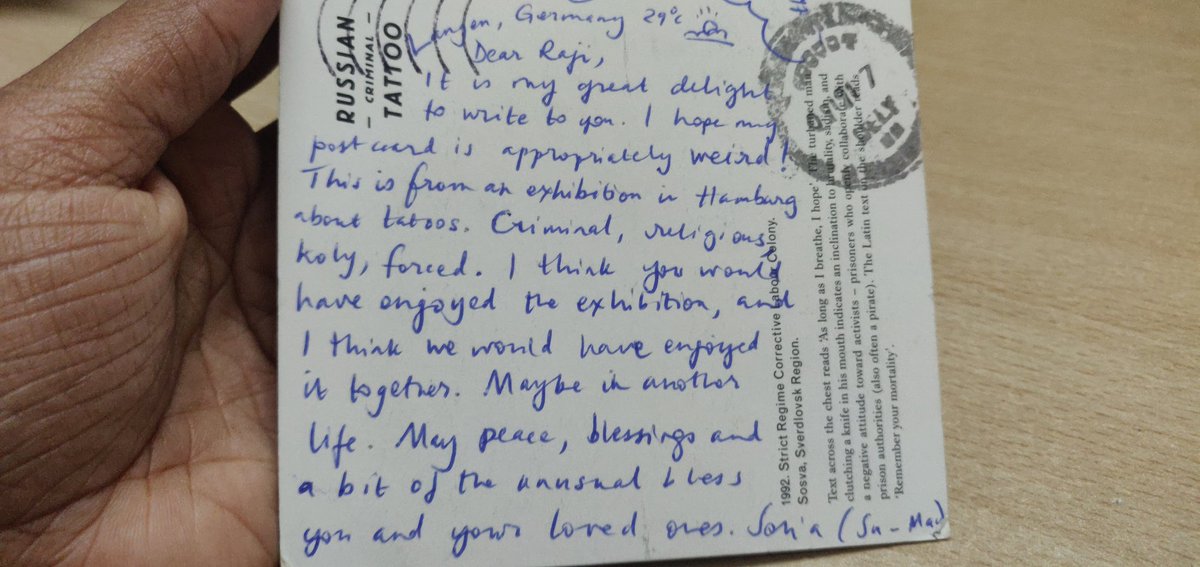 RUSSIAN
– CRIMINAL –
TATTOO
Langen, Germany 29°C
Dear Raji,
It is my great delight
to write to you. I hope my
postcard is appropriately weird!
This is from an exhibition in Hamburg
about tatoos. Criminal, religious,
holy, forced. I think you would
have enjoyed the exhibition, and
I think we would have enjoyed
it together. Maybe in another
life. May peace, blessings and
a bit of the unusual bless
you and your loved ones. Sonia (Su-Mac)
1992. Strict Regime Corrective Labour Colony.
Sosva, Sverdlovsk Region.
Text across the chest reads 'As long as I breathe, I hope'. The turbaned man
clutching a knife in his mouth indicates an inclination to brutality, sadism, and
a negative attitude toward activists – prisoners who openly collaborate with
prison authorities (also often a pirate). The Latin text on the shoulder reads
'Remember your mortality'.